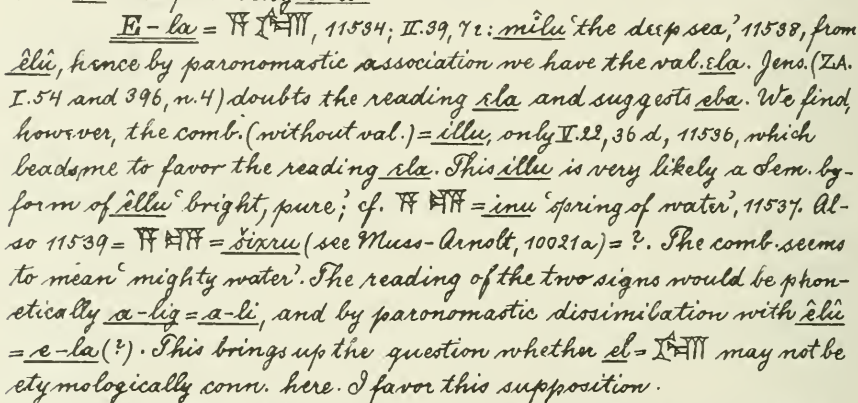 E-la = 𒀀 , 11534; II. 39, 7 : mîlu ‘the deep sea,’ 11538, from
êlû, hence by paronomastic association we have the val. ela. Jens. (ZA.
I. 54 and 396, n. 4) doubts the reading ela and suggests eba. We find,
however, the comb. (without val.) = illu, only V. 22, 36 d, 11536, which
leads me to favor the reading ela. This illu is very likely a Sem. by-
form of êllu ‘bright, pure’; cf. 𒀀 = inu ‘spring of water’, 11537. Al-
so 11539 = 𒀀 = šixru (see Muss-Arnolt, 10021a) = ?. The comb. seems
to mean ‘mighty water’. The reading of the two signs would be phon-
etically a-lig = a-li, and by paronomastic dissimilation with êlû
= e-la (?). This brings up the question whether el = may not be
etymologically conn. here. I favor this supposition.